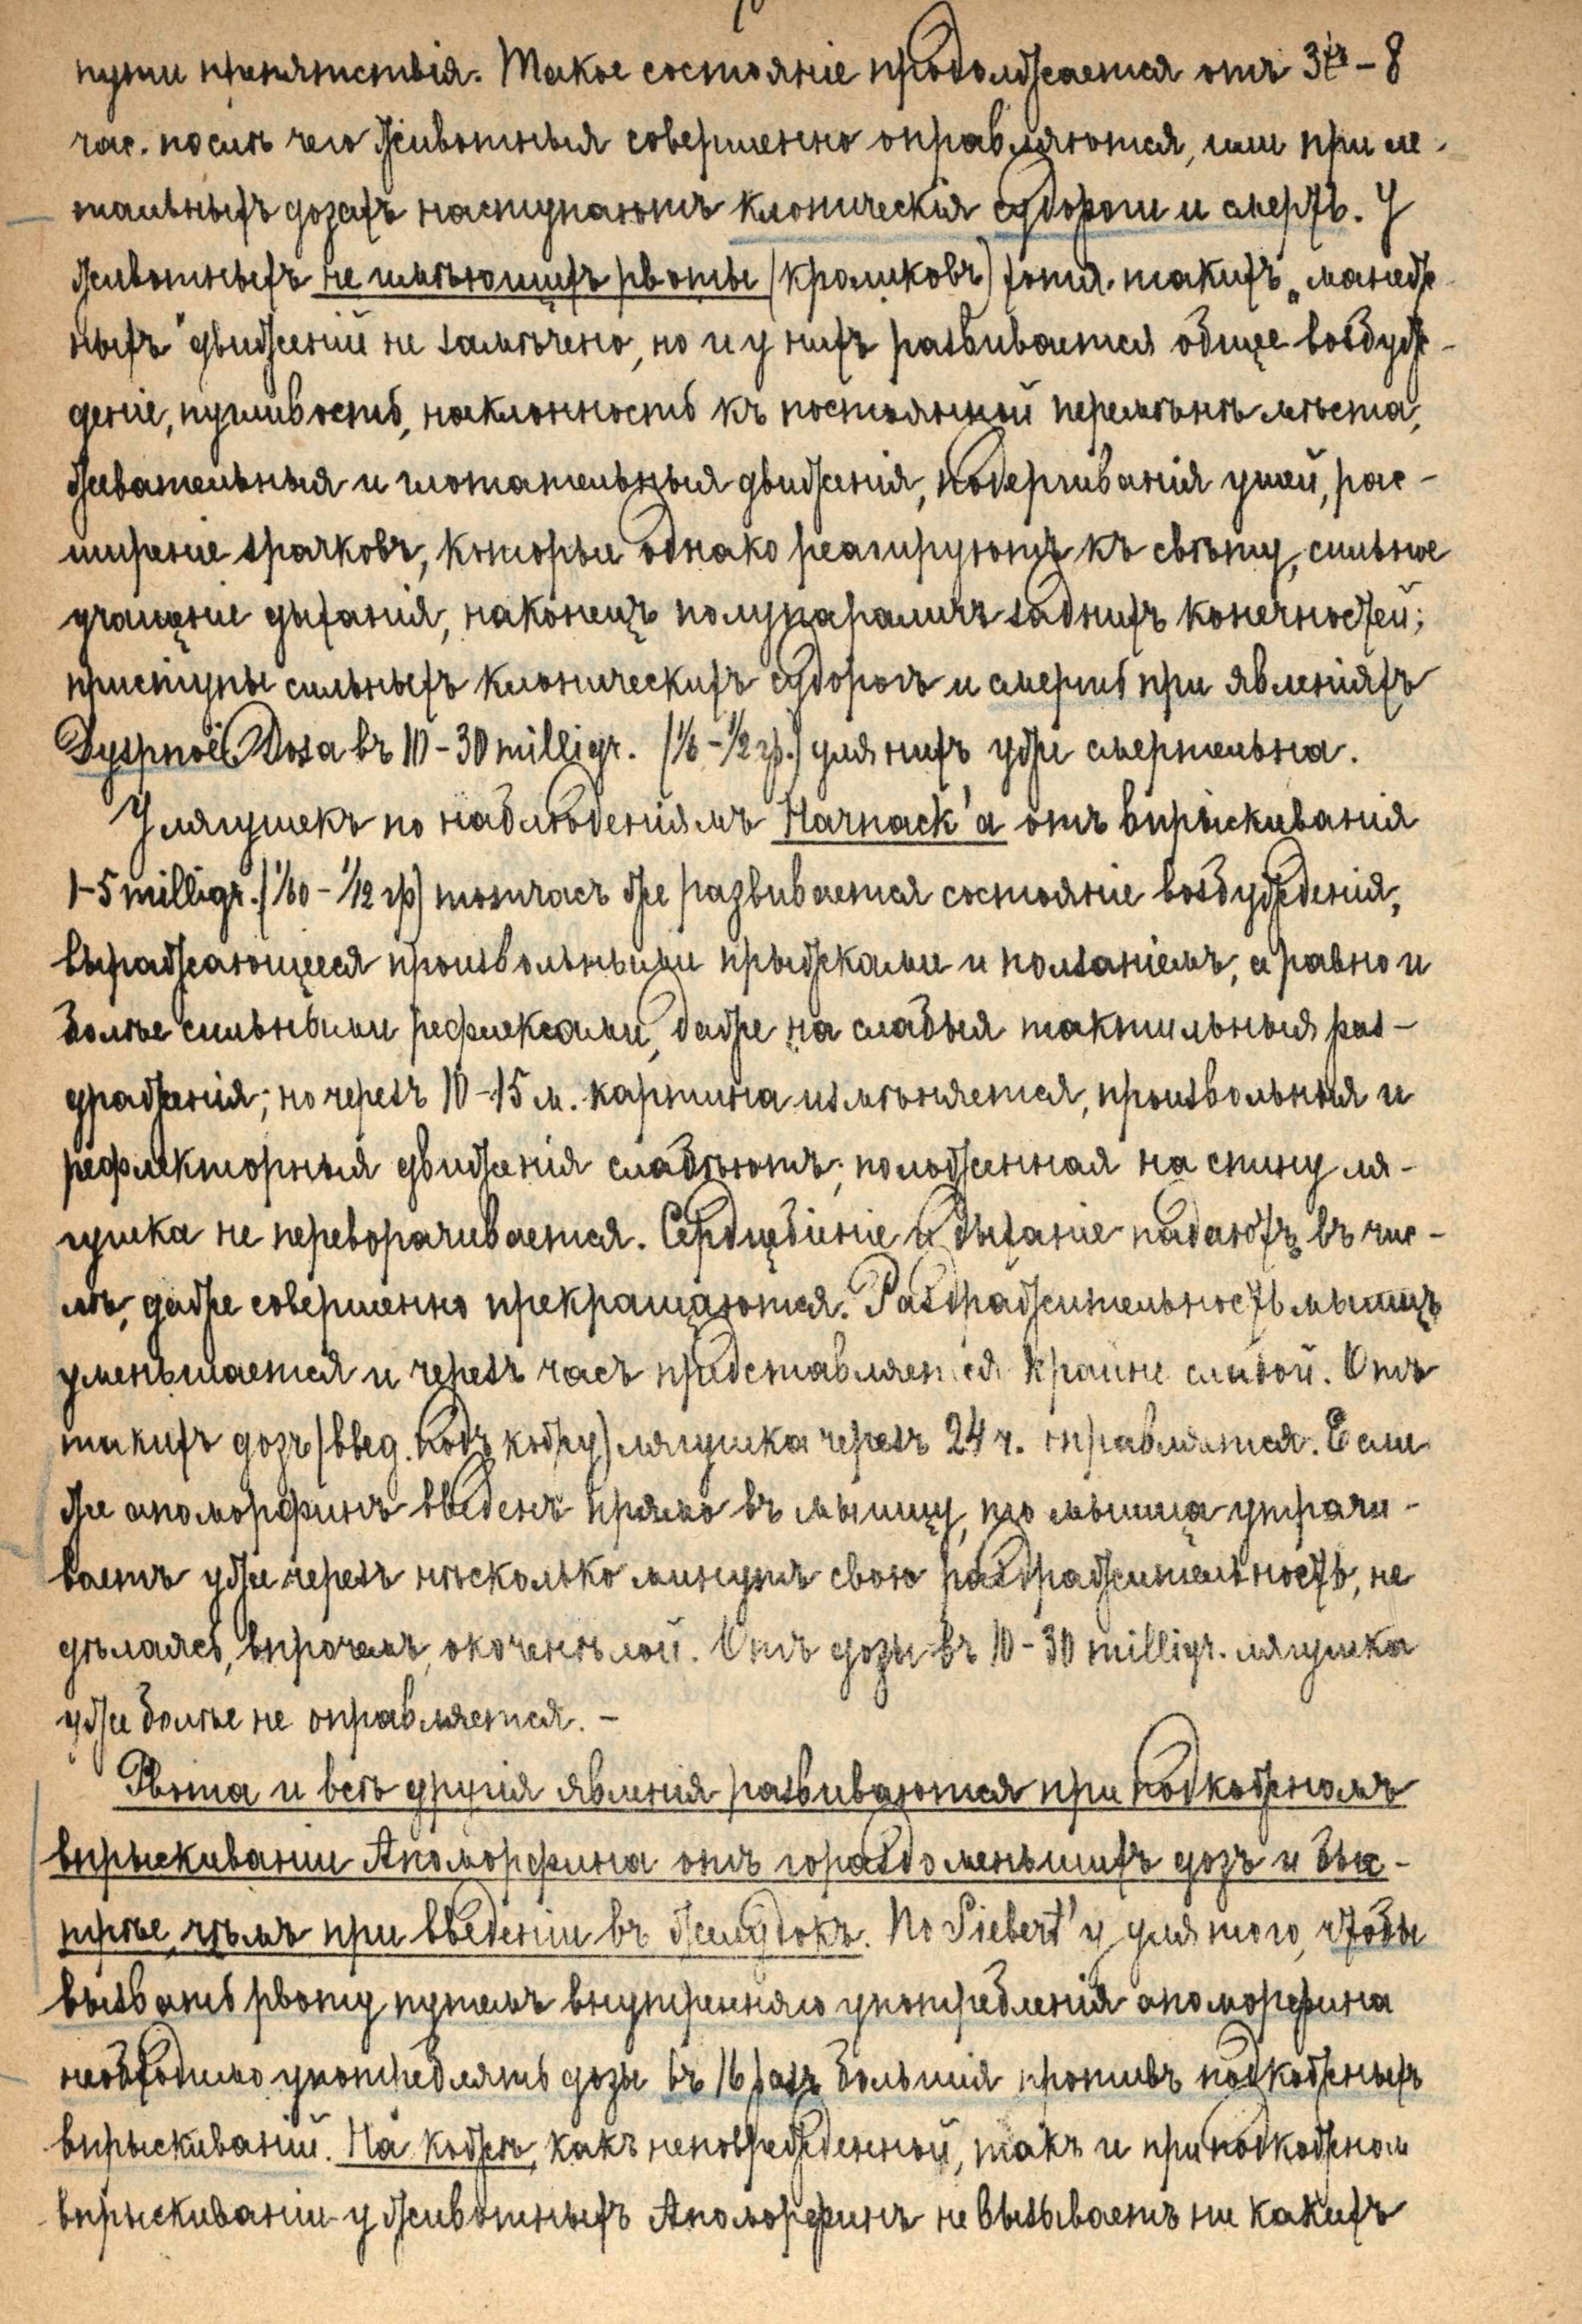 пути препятствія. Такое состояніе продолжается отъ 3хъ – 8
час. послѣ чего животныя совершенно оправляются, или при ле-
тальныхъ дозахъ наступаютъ клоническія судороги и смерть. У
животныхъ не имѣющихъ рвоты (кроликовъ) хотя такихъ „манеж-
ныхъ" движеній не замѣчено, но и у нихъ развивается общее возбуж-
деніе, пугливость, наклонность къ постоянной перемѣнѣ мѣста,
жевательныя и глотательныя движенія, подергиванія ушей, рас-
ширеніе зрачковъ, которые однако реагируютъ къ свѣту, сильное
учащеніе дыханія, наконецъ полупараличъ заднихъ конечностей;
приступы сильныхъ клоническихъ судорогъ и смерть при явленіяхъ
Dyspnoë. Доза въ 10 – 30 milligr. (1/6 – 1/2 гр.) для нихъ уже смертельна.
У лягушекъ по наблюденіямъ Harnack'а отъ впрыскиванія
1–5 milligr. (1/60 – 1/12 гр) тотчасъ же развивается состояніе возбужденія,
выражающееся произвольными прыжками и ползаніемъ, а равно и
болѣе сильными рефлексами, даже на слабыя тактильныя раз-
драженія; но черезъ 10–15 м. картина измѣняется, произвольныя и
рефлекторныя движенія слабѣютъ; положенная на спину ля-
гушка не переворачивается. Сердцебіеніе и дыханіе падаютъ въ чис-
лѣ, даже совершенно прекращаются. Раздражительность мышцъ
уменьшается и черезъ часъ представляется крайне слабой. Отъ
такихъ дозъ (введ. подъ кожу) лягушка черезъ 24 ч. оправляется. Если
же апоморфинъ введенъ прямо въ мышцу, то мышца утрачи-
ваетъ уже черезъ нѣсколько минутъ свою раздражительность, не
дѣлаясь, впрочемъ, окоченѣлой. Отъ дозы въ 10 – 30 milligr. лягушка
уже болѣе не оправляется. –
Рвота и всѣ другія явленія развиваются при подкожномъ
впрыскиваніи Апоморфина отъ гораздо меньшихъ дозъ и быс-
трѣе, чѣмъ при введеніи въ желудокъ. По Siebert'у для того, чтобы
вызвать рвоту путемъ внутренняго употребленія апоморфина
необходимо употреблять дозы въ 16 разъ большія противъ подкожныхъ
впрыскиваній. На кожѣ, какъ неповрежденной, такъ и при подкожном
впрыскиваніи у животныхъ Апоморфинъ не вызываетъ ни какихъ